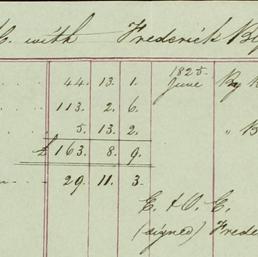 C. with Frederick
44. 13. 1. 1825. June By
113. 2. 6.
5. 13. 2. "
£ 163. 8. 9.
29. 11. 3.
E. & O. E.
(signed) Frede